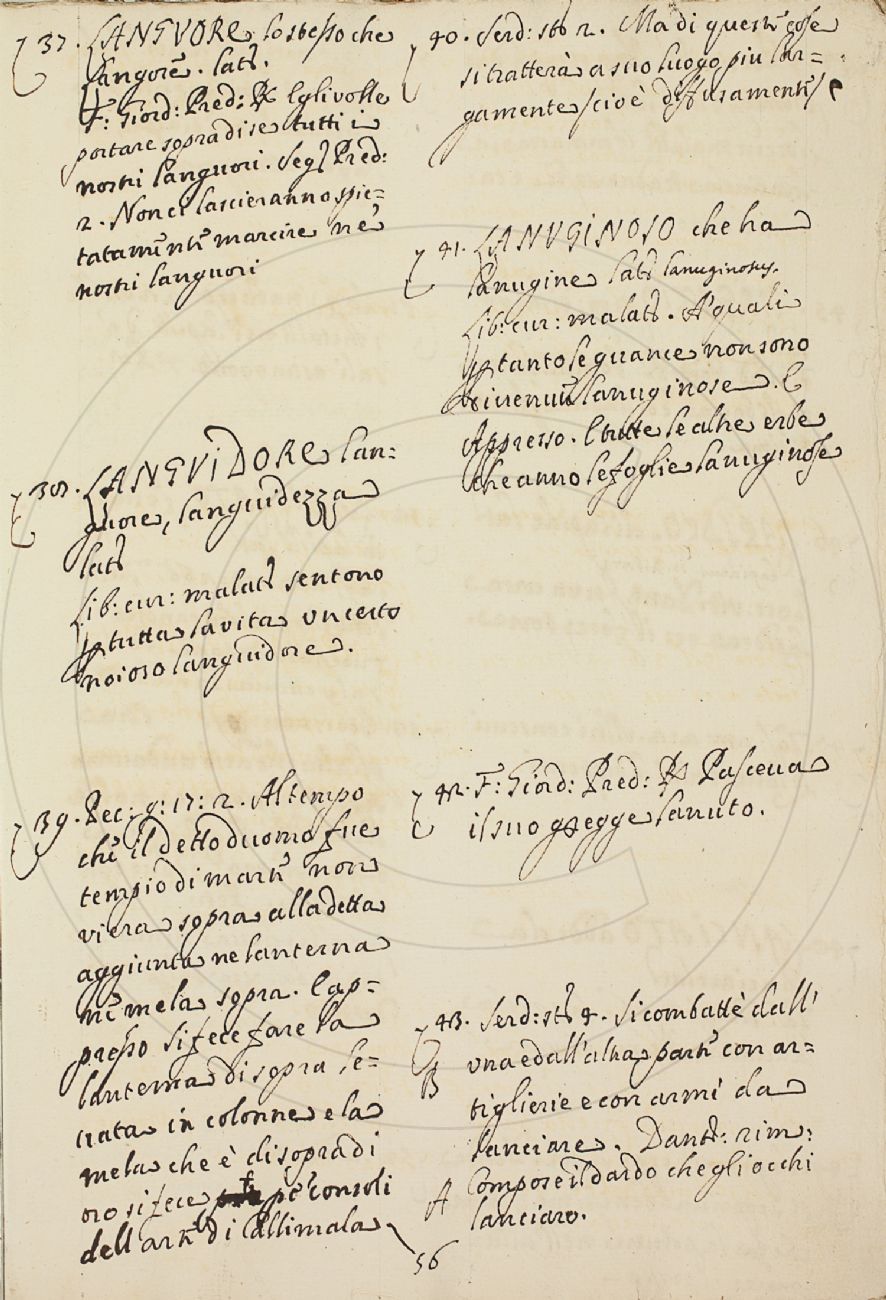 37. LANGVORE lo stesso che
Langore. Lat.
F: Giord: Pred: R Egli volle
portare sopra di se tutti i
nostri languori. Seg. Pred:
2. Non ci lascieranno spie=
tatamente marcire ne
nostri languori
38. LANGVIDORE lan=
guore, languidezza
lat
Lib: cur: malat sentono
p tutta la vita un certo
noioso languidore.
39. Pec: g: 17: 2. Al tempo
che il detto duomo fue
tempio di marte non
v'iera sopra alla detta
aggiunta ne lanterna
ne mela sopra. E ap=
presso si fece fare la
lanterna di sopra le=
uata in colonne e la
mela che è di sopra di
oro si fece pe consoli
dell'arte di Callimala
40. Serd: st 2. Ma di queste cose
si tratterà a suo luogo piu lar=
gamente /cioè diffusamente/
41. LANVGINOSO che ha
lanugine lat lanuginosus.
Lib: cur: malat. A quali
p tanto le guance non sono
diuenute lanuginose. E
Appresso. E tutte le altre erbe
che anno le foglie lanuginose
42. F: Giord: Pred: R Pasceua
il suo gregge lanuto.
43. Serd: st 4. Si combattè dall'
B vna e dall'altra parte con ar=
tiglierie e con armi da
lanciare. Dant: rim:
A Compose il dardo che gli occhi
lanciaro.
56